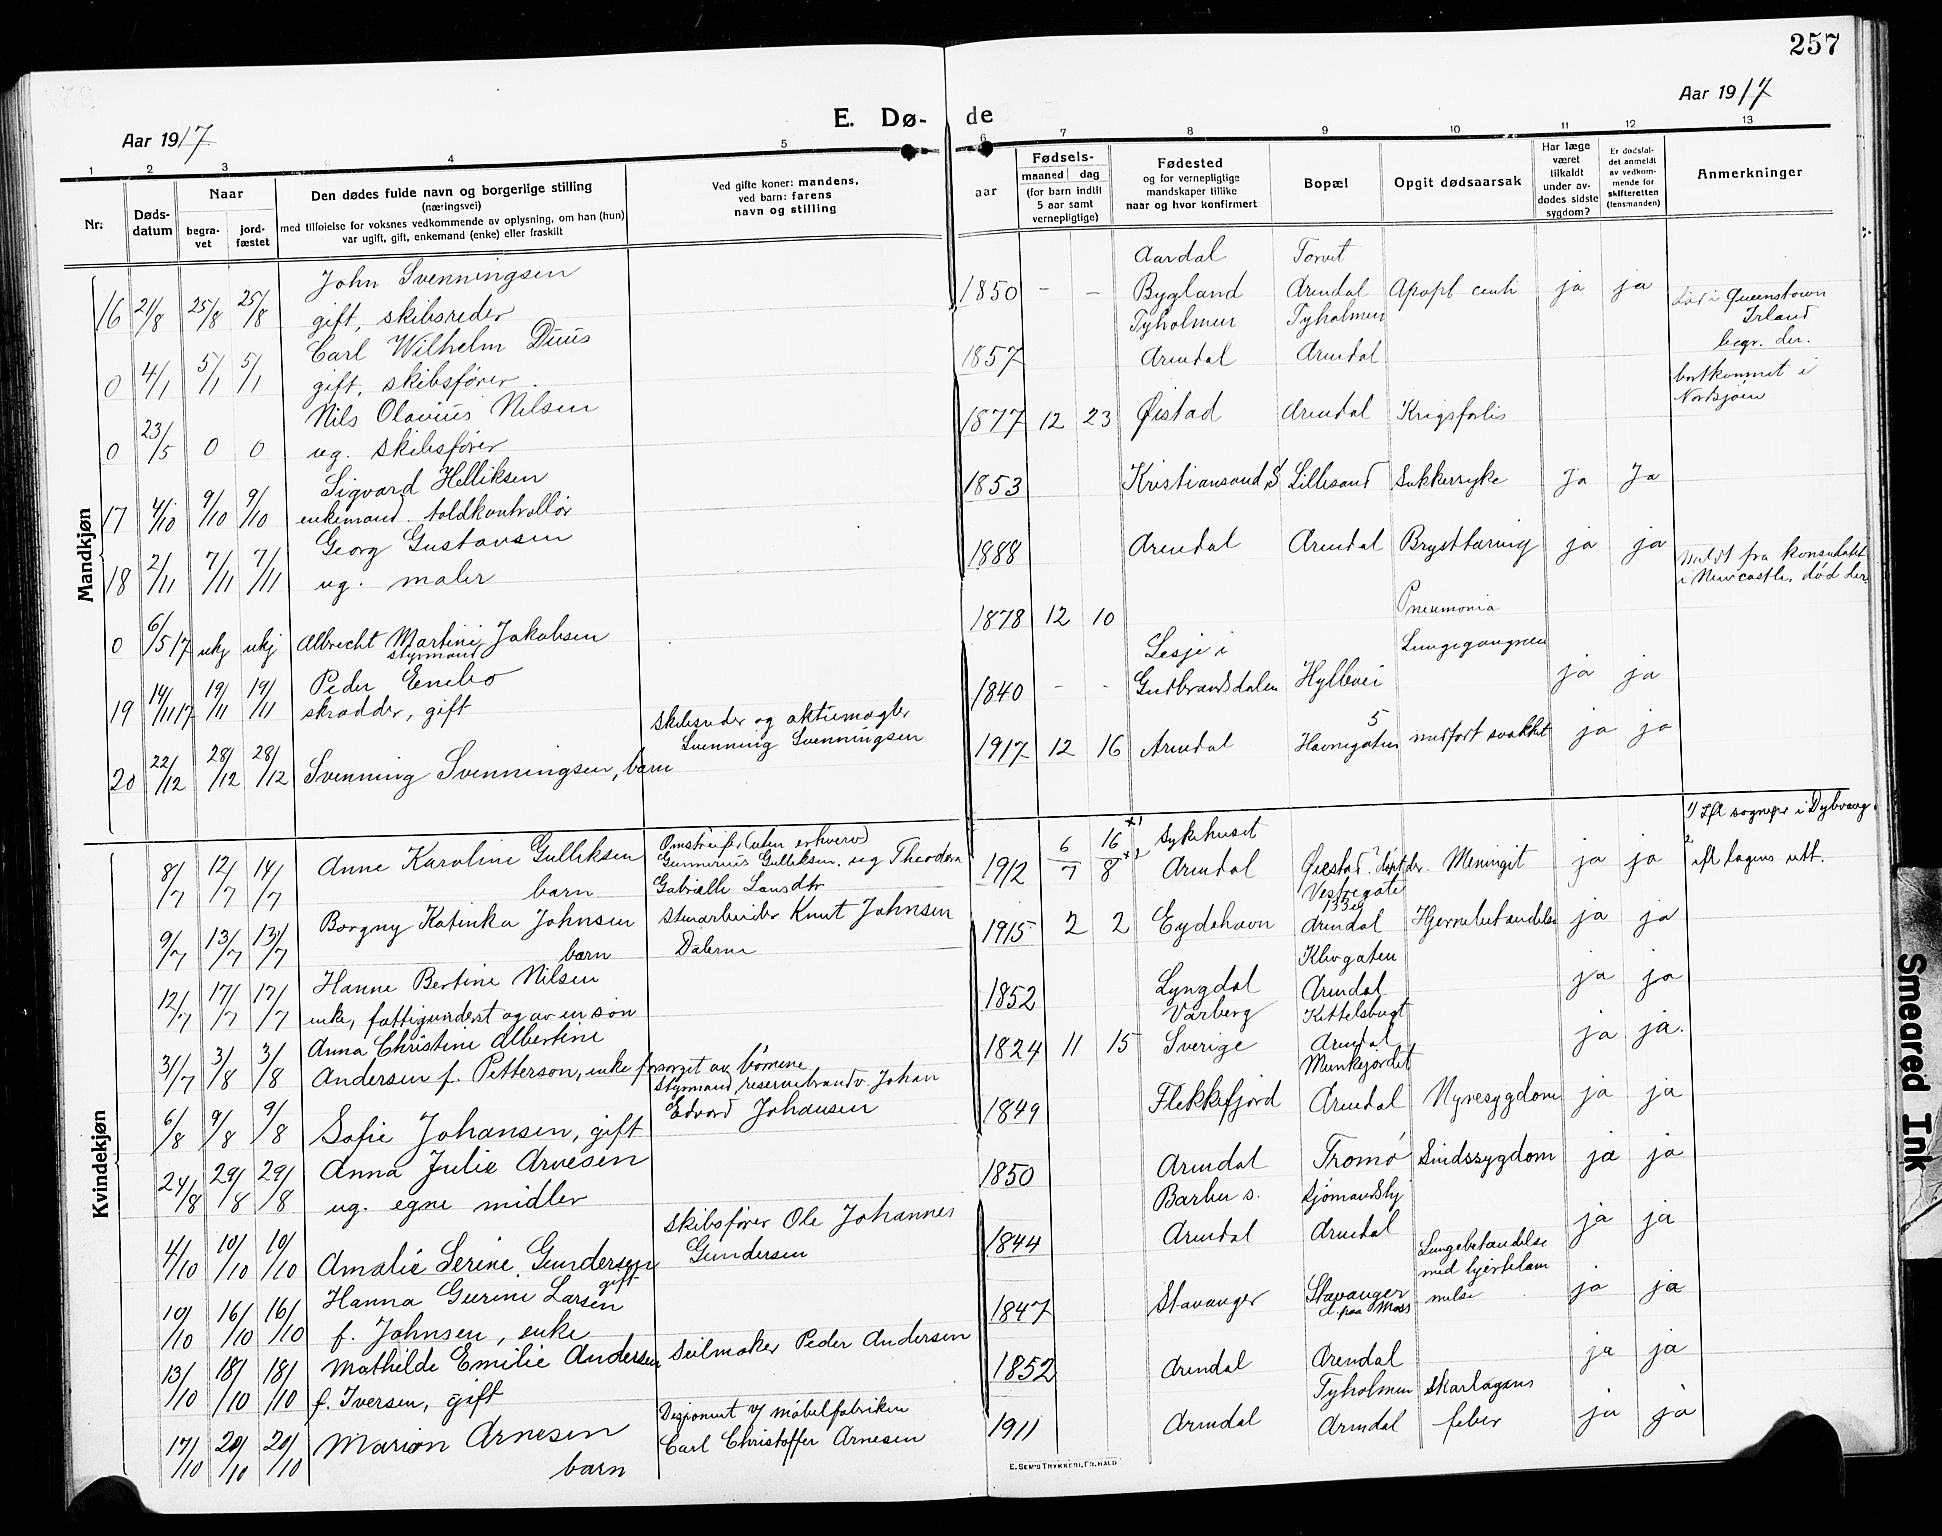 257
Aar 1917
E. Dø-
de
Aar 1917
1 2 3 4 5 6 7 8 9 10 11 12 13
Nr:
Døds-
datum
Naar
begra-
vet
jord-
fæstet
Den dødes fulde navn og borgerlige stilling
(næringsvei)
med tilføielse for voksnes vedkommende av oplysning, om han (hun)
var ugift, gift, enkemand (enke) eller fraskilt
Ved gifte koner: mandens,
ved barn: farens
navn og stilling
aar
Fødsels-
maaned dag
(for barn indtil
5 aar samt
vernepligtige)
Fødested
og for vernepligtige
mandskaper tillike
naar og hvor konfirmert
Bopæl
Opgit dødsaarsak
Har læge
været
tilkaldt
under av-
dødes sidste
sygdom?
Er dødsfal-
det anmeldt
av vedkom-
mende for
skifteretten
(lensmanden)
Anmerkninger
Mandkjøn
John Svenningsen
16 21/8 25/8 25/8 gift, skibsreder
Aardal Torvet
1850 - - Bygland Arendal Apopl. ja ja
Tyholmen Tyholmen
Død i Queenstown
Irland
begr. der.
Carl Wilhelm Duus
0 4/1 5/1 5/1 gift, skibsfører.
1857 Arendal Arendal
Nils Olavius Nilsen
0 23/5 0 0 ug. skibsfører
1877 12 23 Øistad Arendal Krigsforlis
bortkommet i
Nordsjøen
Sigvard Helliksen
17 4/10 9/10 9/10 enkemand. toldkontrollør
1853 Kristiansand S Lillesand Sukkersyke Ja Ja
Georg Gustavsen
18 2/11 7/11 7/11 ug. maler
1888 Arendal Arendal Brysttæring ja ja
Meldt fra konsulatet
i Newcastle, død der
0 6/5 17 ukj ukj Albrecht Martini Jakobsen
styrmand
1878 12 10 Pneumonia
Peder Enebo
19 14/11 17 19/11 19/11 skrædder, gift
Lesje i
1840 - - Gudbrandsdalen Hyllevei ja ja
Skibsreder og aktiemægler
Svenning Svenningsen
20 22/12 28/12 28/12 Svenning Svenningsen, barn
5
1917 12 16 Arendal Havnegaten medfødt svakhet ja ja
Kvindekjøn
8/7 12/7 14/7 Anne Karoline Gulliksen
barn
Omstreifer, (uten erhverv)
Gunnerius Gulliksen, ug Theodora
Gabrielle Larsdtr
6 16 x1 Sykehuset
1912 7 8 x2 Arendal Øiestad? død der. Meningit ja ja
1) Ifl sognepr i Dybvaag.
2 ifl lægens att.
9/7 13/7 13/7 Borgny Katinka Johnsen
barn
stenarbeider Knut Johnsen
Dalerne
Vestregate
133
1915 2 2 Eydehavn Arendal Hjernebetændelse ja ja
Hanne Bertine Nilsen
12/7 17/7 17/7 enke, fattigunderst og av en søn
Klevgaten
1852 Lyngdal Arendal ja ja
Anna Christine Albertine
31/7 3/8 3/8 Andersen f. Petterson, enke forsørget av børnene
Varberg Kittelsbugt
1824 11 15 Sverige Arendal ja ja.
6/8 9/8 9/8 Sofie Johansen, gift
Styrmand, reservebrandv. Johan
Edvard Johansen
Munkejordet
1849 Flekkefjord Arendal Nyresygdom ja ja
Anna Julie Arnesen
24/8 29/8 29/8 ug. egne midler
1850 Arendal Tromø Sindssygdom ja ja
4/10 10/10 10/10 Amalie Serine Gundersen
gift
Skibsfører Ole Johannes
Gundersen
Barbu s. Sjømandsby
1844 Arendal Arendal ja ja
Hanna Gurine Larsen
10/10 16/10 16/10 f. Johnsen, enke
1847 Stavanger Stavanger
d. paa Moss
Lungebetændelse
med hjertelam
melse ja ja
Mathilde Emilie Andersen
13/10 18/10 18/10 f. Iversen, gift
Seilmaker Peder Andersen
1852 Arendal Arendal ja ja
17/10 20/10 20/10 Marion Arnesen
barn
Disponent v/ møbelfabriken
Carl Christoffer Arnesen
Tyholmen Skarlagens
1911 Arendal Arendal feber ja ja
E. SEM'S TRYKKERI, FR.HALD
Smeared Ink